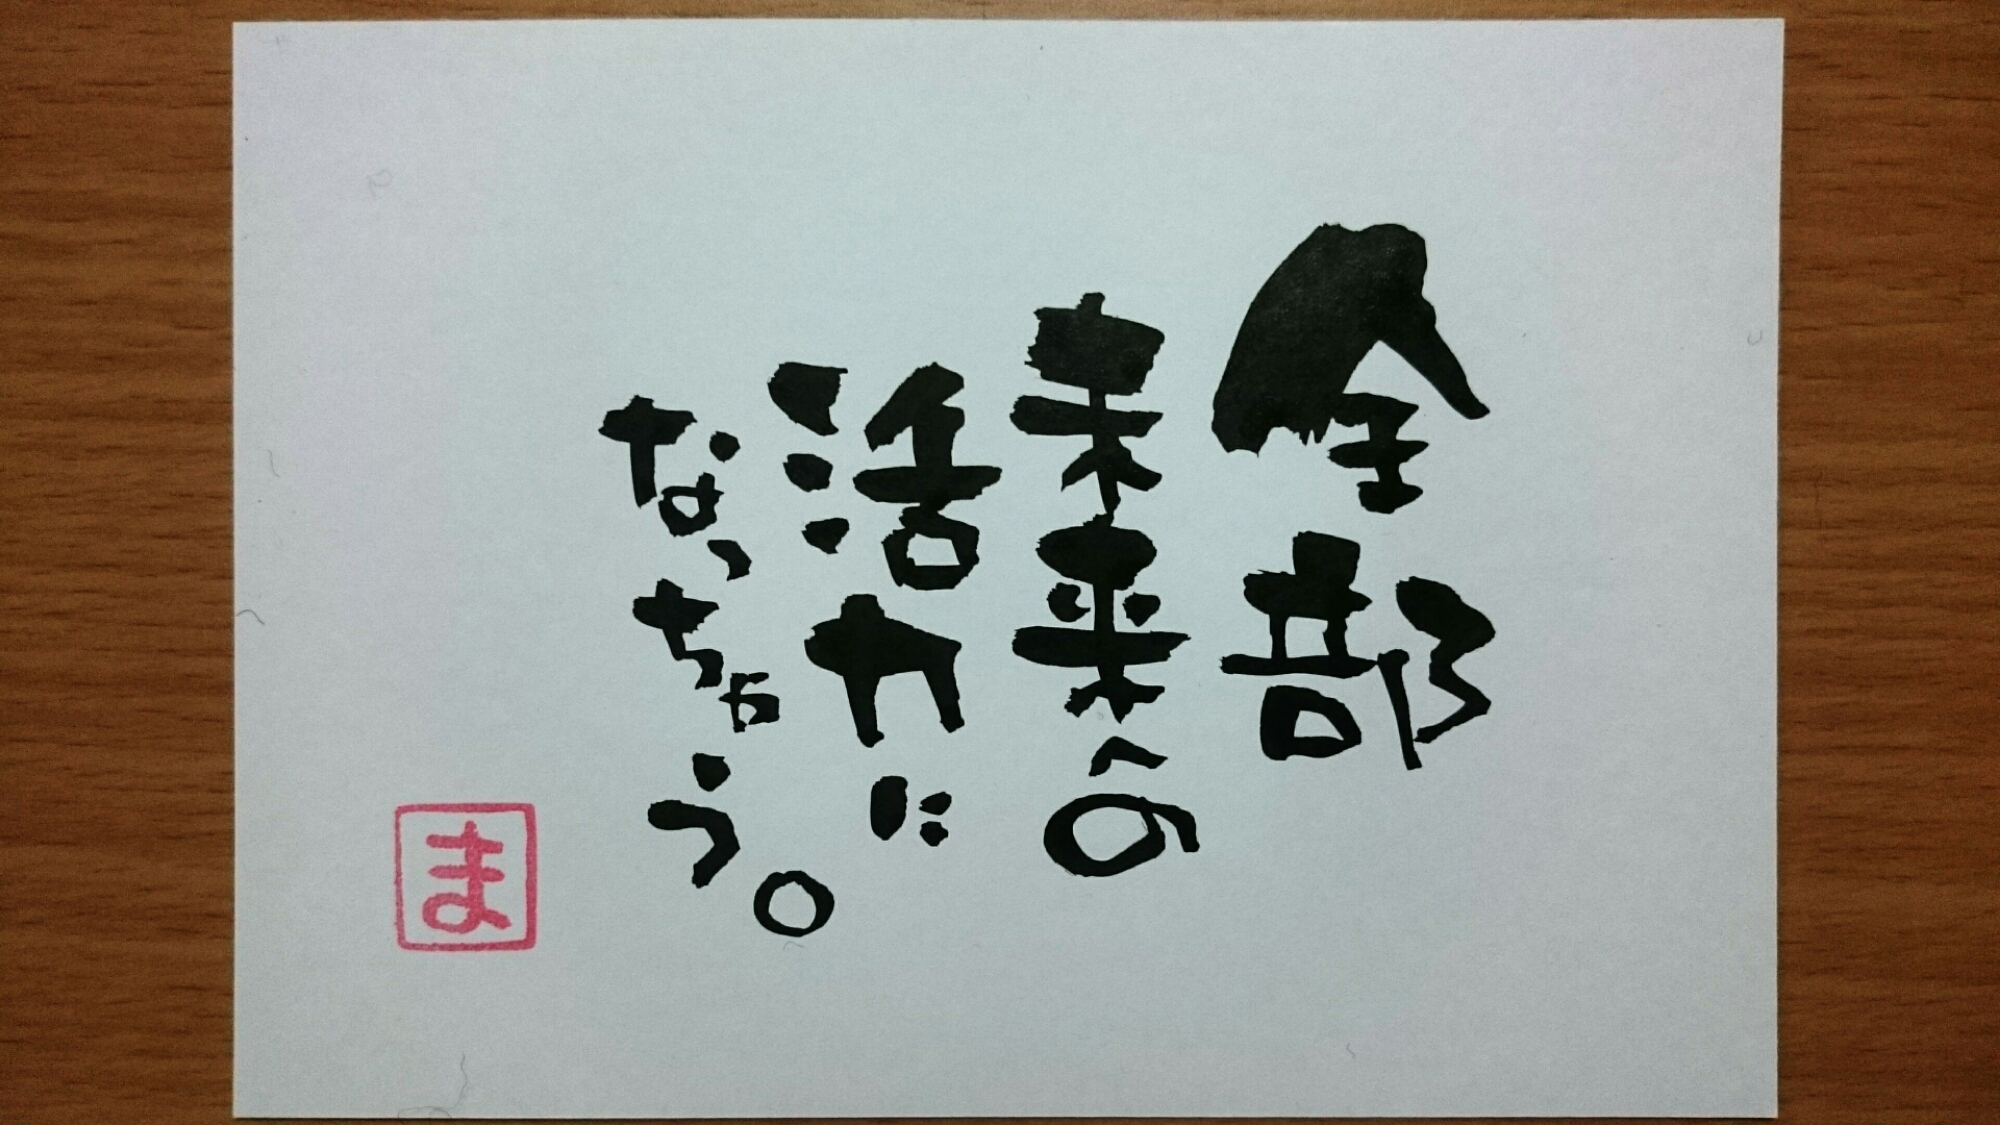 全部
未来への
活力に
なっちゃう。
ま